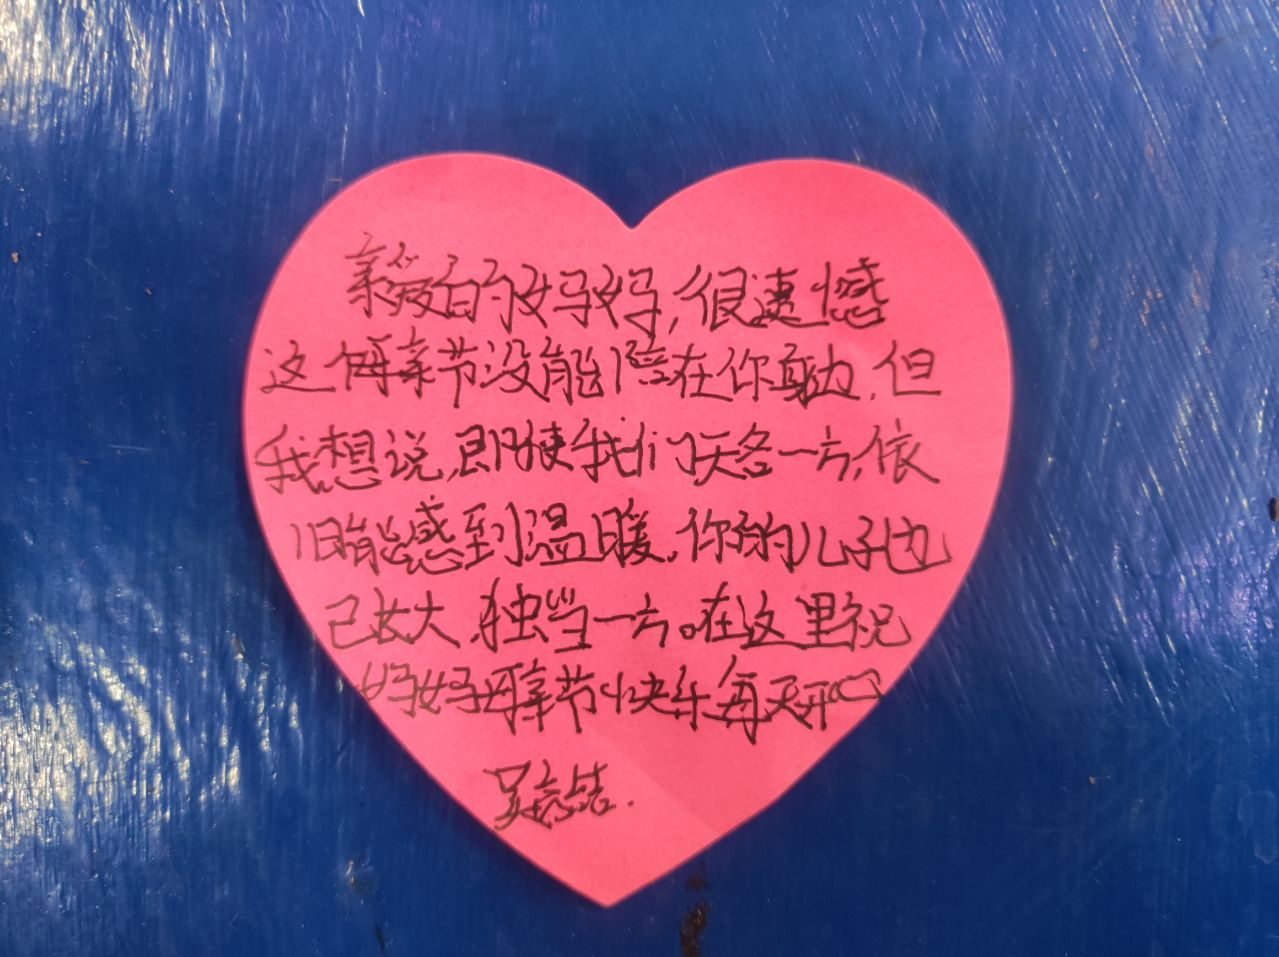 亲爱的妈妈,很遗憾
这个母亲节没能陪在你身边,但
我想说,即使我们天各一方,依
旧能感到温暖,你的儿子也
已长大,独当一方。在这里祝
妈妈母亲节快乐每天开心